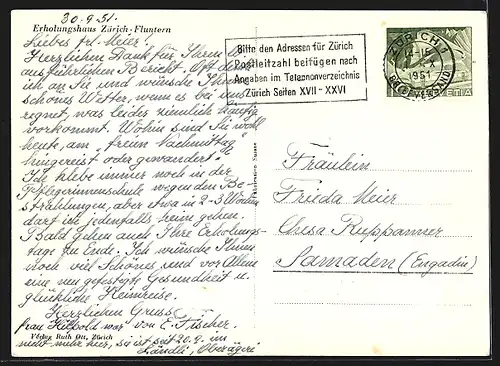 30.9.51.
Erholungshaus Zürich-Fluntern
Liebes Frl. Meier!
Herzlichen Dank für Ihren
ausführlichen Bericht. Oft denke
ich an Sie und wünsche Ihnen
schönes Wetter, wenn es bei uns
regnet, was leider ziemlich häufig
vorkommt. Wohin sind Sie wohl
heute, am "freien Nachmittag"
hingereist oder gewandert?
Ich klebe immer noch in der
Pflegerinnenschule wegen den Be-
strahlungen, aber etwa in 2-3 Wochen
darf ich jedenfalls heim gehen.
Bald gehen auch Ihre Erholungs-
tage zu Ende. Ich wünsche Ihnen
noch viel Schönes und vor Allem
eine neu gefestigte Gesundheit u.
glückliche Heimreise.
Herzlichen Gruss
von E. Fischer.
Frau Hilpold war
nicht mehr hier, sie ist seit 20.9. im
Ländli, Oberägeri
Verlag Ruth Ott, Zürich
Bitte den Adressen für Zürich
Postleitzahl beifügen nach
Angaben im Telefonverzeichnis
Zürich Seiten XVII - XXVI
ZÜRICH 1
1951
BRIEFVERSAND
HELVETIA
Fräulein
Frieda Meier
Chesa Ruppanner
Samaden (Engadin)